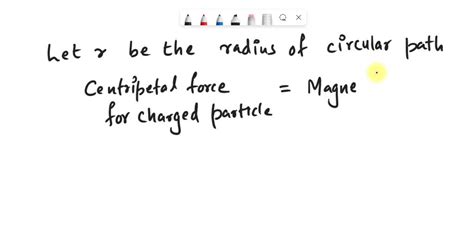 Let r be the radius of circular path
Centripetal force = Magne
for charged particle